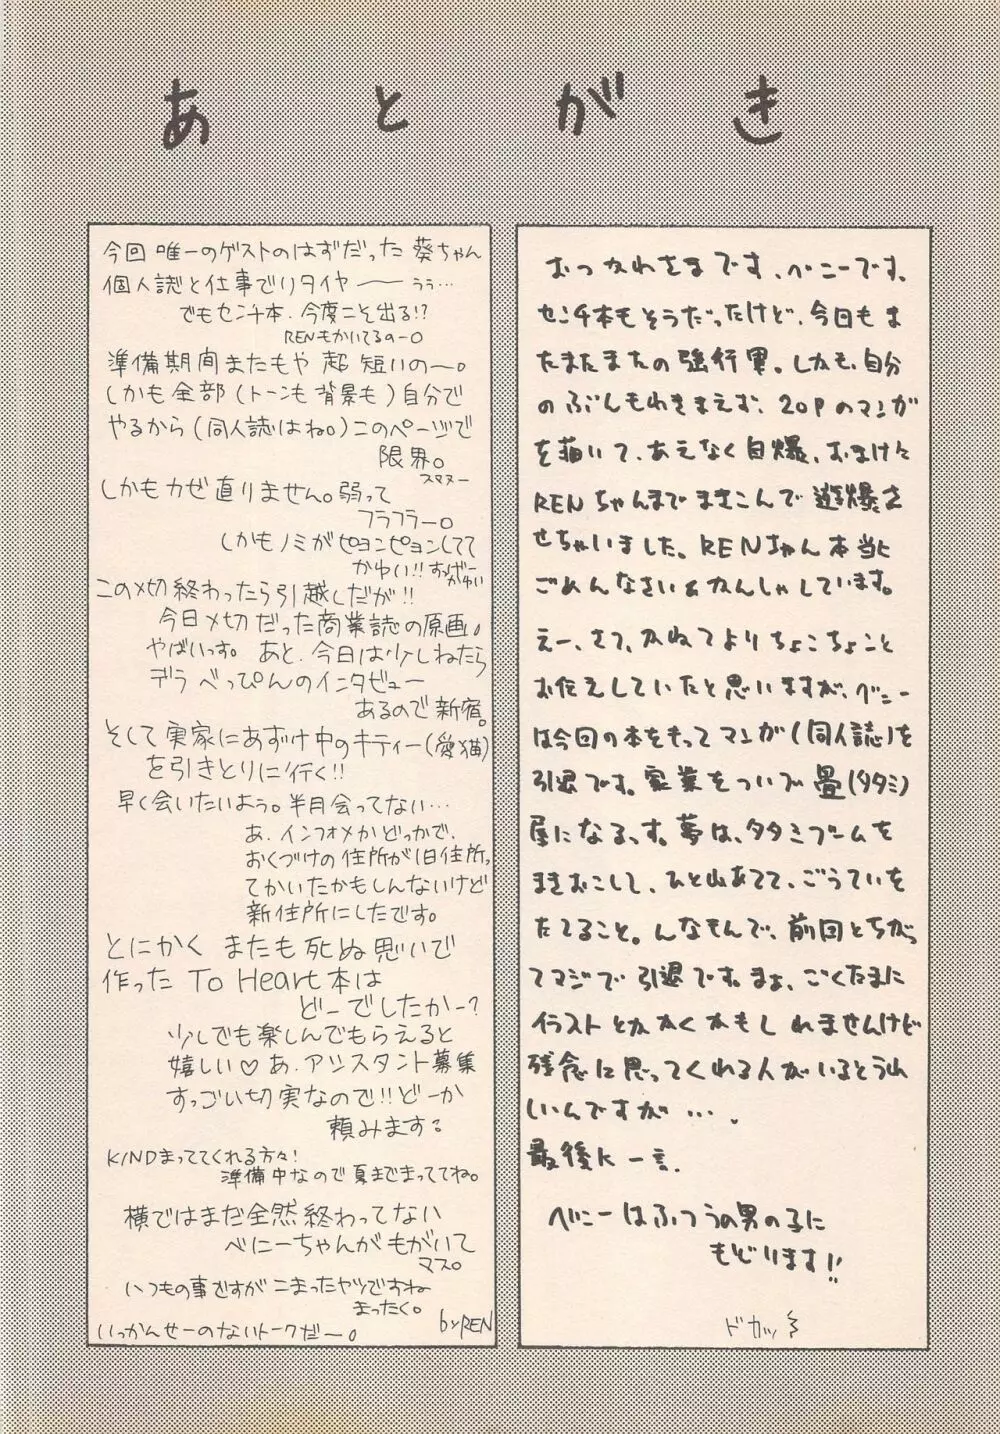 あとがき
今回 唯一のゲストのはずだった 葵ちゃん
個人誌と仕事でリタイヤ―― うぅ…
でもセンチ本、今度こそ出る!?
RENもかいてるのー○
準備期間またもや 超 短いの～。
しかも全部(トーンも背景も)自分で
やるから(同人誌はね。)このページで
限界。
スマヌー
しかもカゼ直りません。弱って
フラフラー。
しかもノミがピョンピョンしてて
かゆい!! すんげーかゆい
この〆切終わったら引越しだが!!
今日〆切だった商業誌の原画。
やばいっす。あと、今日は少しねたら
デラべっぴんのインタビュー
あるので新宿。
そして実家にあずけ中のキティー(愛猫)
を引きとりに行く!!
早く会いたいよう。半月会ってない…
あ、インフォメかどっかで、
おくづけの住所が旧住所っ
てかいたかもしんないけど
新住所にしたです。
とにかく またも死ぬ思いで
作った To Heart本は
どーでしたかー?
少しでも楽しんでもらえると
嬉しい♡ あ、アシスタント募集
すっごい切実なので!!どーか
頼みます。
KINDまっててくれる方々!
準備中なので夏までまっててね。
横ではまだ全然終わってない
べにーちゃんがもがいて
マス。
いつもの事ですがこまったヤツですね
まったく。
いっかんせーのないトークだ～。
by REN
おつかれさまです、べニーです。
センチ本もそうだったけど、今回もま
たまたまたの強行軍。しかも、自分
のぶんもわきまえず、20Pのマンガ
を描いて、あえなく自爆、おまけに
RENちゃんまでまきこんで誘爆さ
せちゃいました。RENちゃん本当に
ごめんなさい&かんしゃしています。
えー、さて、かねてよりちょこちょこと
お伝えしていたと思いますが、べニー
は今回の本をもってマンガ(同人誌)を
引退です。家業をついで畳(タタミ)
屋になるっす。夢は、タタミブームを
まきおこして、ひと山あてて、ごうていを
たてること。んなもんで、前回とちがっ
てマジで引退です。まぁ、ごくたまに
イラストとかかくかもしれませんけど
残念に思ってくれる人がいるとうれ
しいんですが…。
最後に一言、
べにーはふつうの男の子に
もどります!!
ドカッ